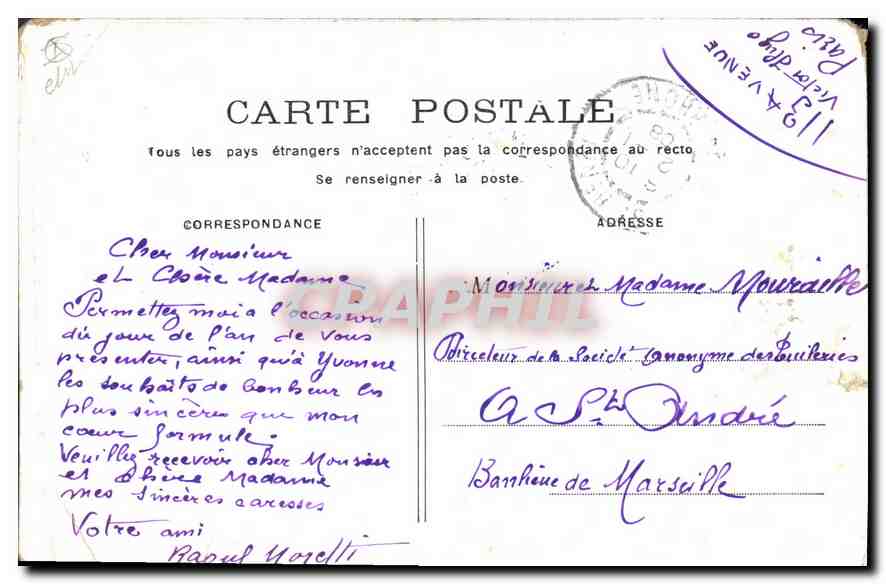 113 AVENUE
Victor Hugo
Paris
CARTE POSTALE
Tous les pays étrangers n'acceptent pas la correspondance au recto
Se renseigner à la poste.
CORRESPONDANCE
Cher Monsieur
et Chère Madame
Permettez moi a l'occasion
du jour de l'an de vous
présenter, ainsi qu'à Yvonne
les souhaits de bonheur les
plus sincères que mon
cœur formule.
Veuillez recevoir cher Monsieur
et Chère Madame
mes sincères caresses
Votre ami
Raoul Moretti
ADRESSE
Monsieur et Madame Mouraille
Directeur de la Société Anonyme des Tuileries
A St André
Banlieue de Marseille
CPAPHIL